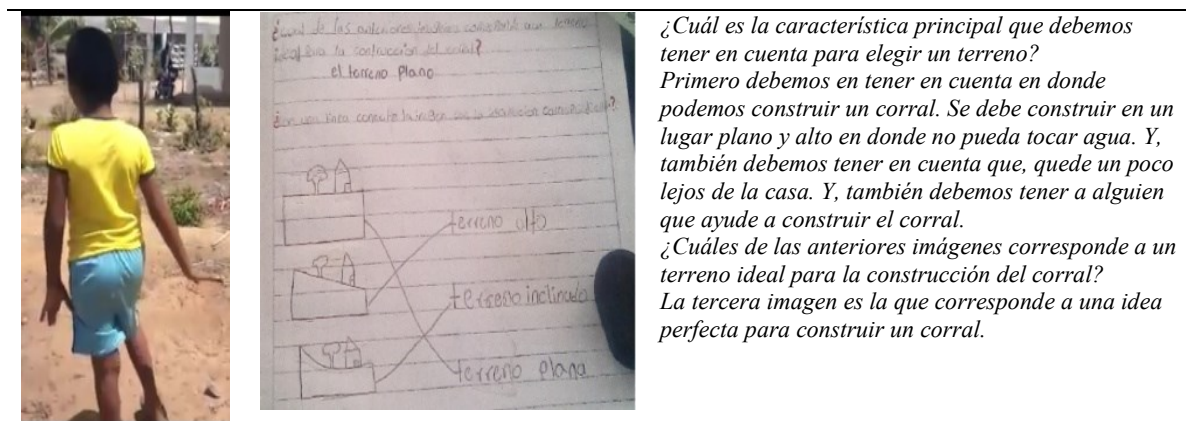 ¿cual de las anteriores imagenes corresponde a un terreno
ideal para la construcción del corral?
el terreno Plano
¿con una raya conecte la imagen con la
terreno alto
terreno inclinado
terreno plano
¿Cuál es la característica principal que debemos
tener en cuenta para elegir un terreno?
Primero debemos en tener en cuenta en donde
podemos construir un corral. Se debe construir en un
lugar plano y alto en donde no pueda tocar agua. Y,
también debemos tener en cuenta que, quede un poco
lejos de la casa. Y, también debemos tener a alguien
que ayude a construir el corral.
¿Cuáles de las anteriores imágenes corresponde a un
terreno ideal para la construcción del corral?
La tercera imagen es la que corresponde a una idea
perfecta para construir un corral.